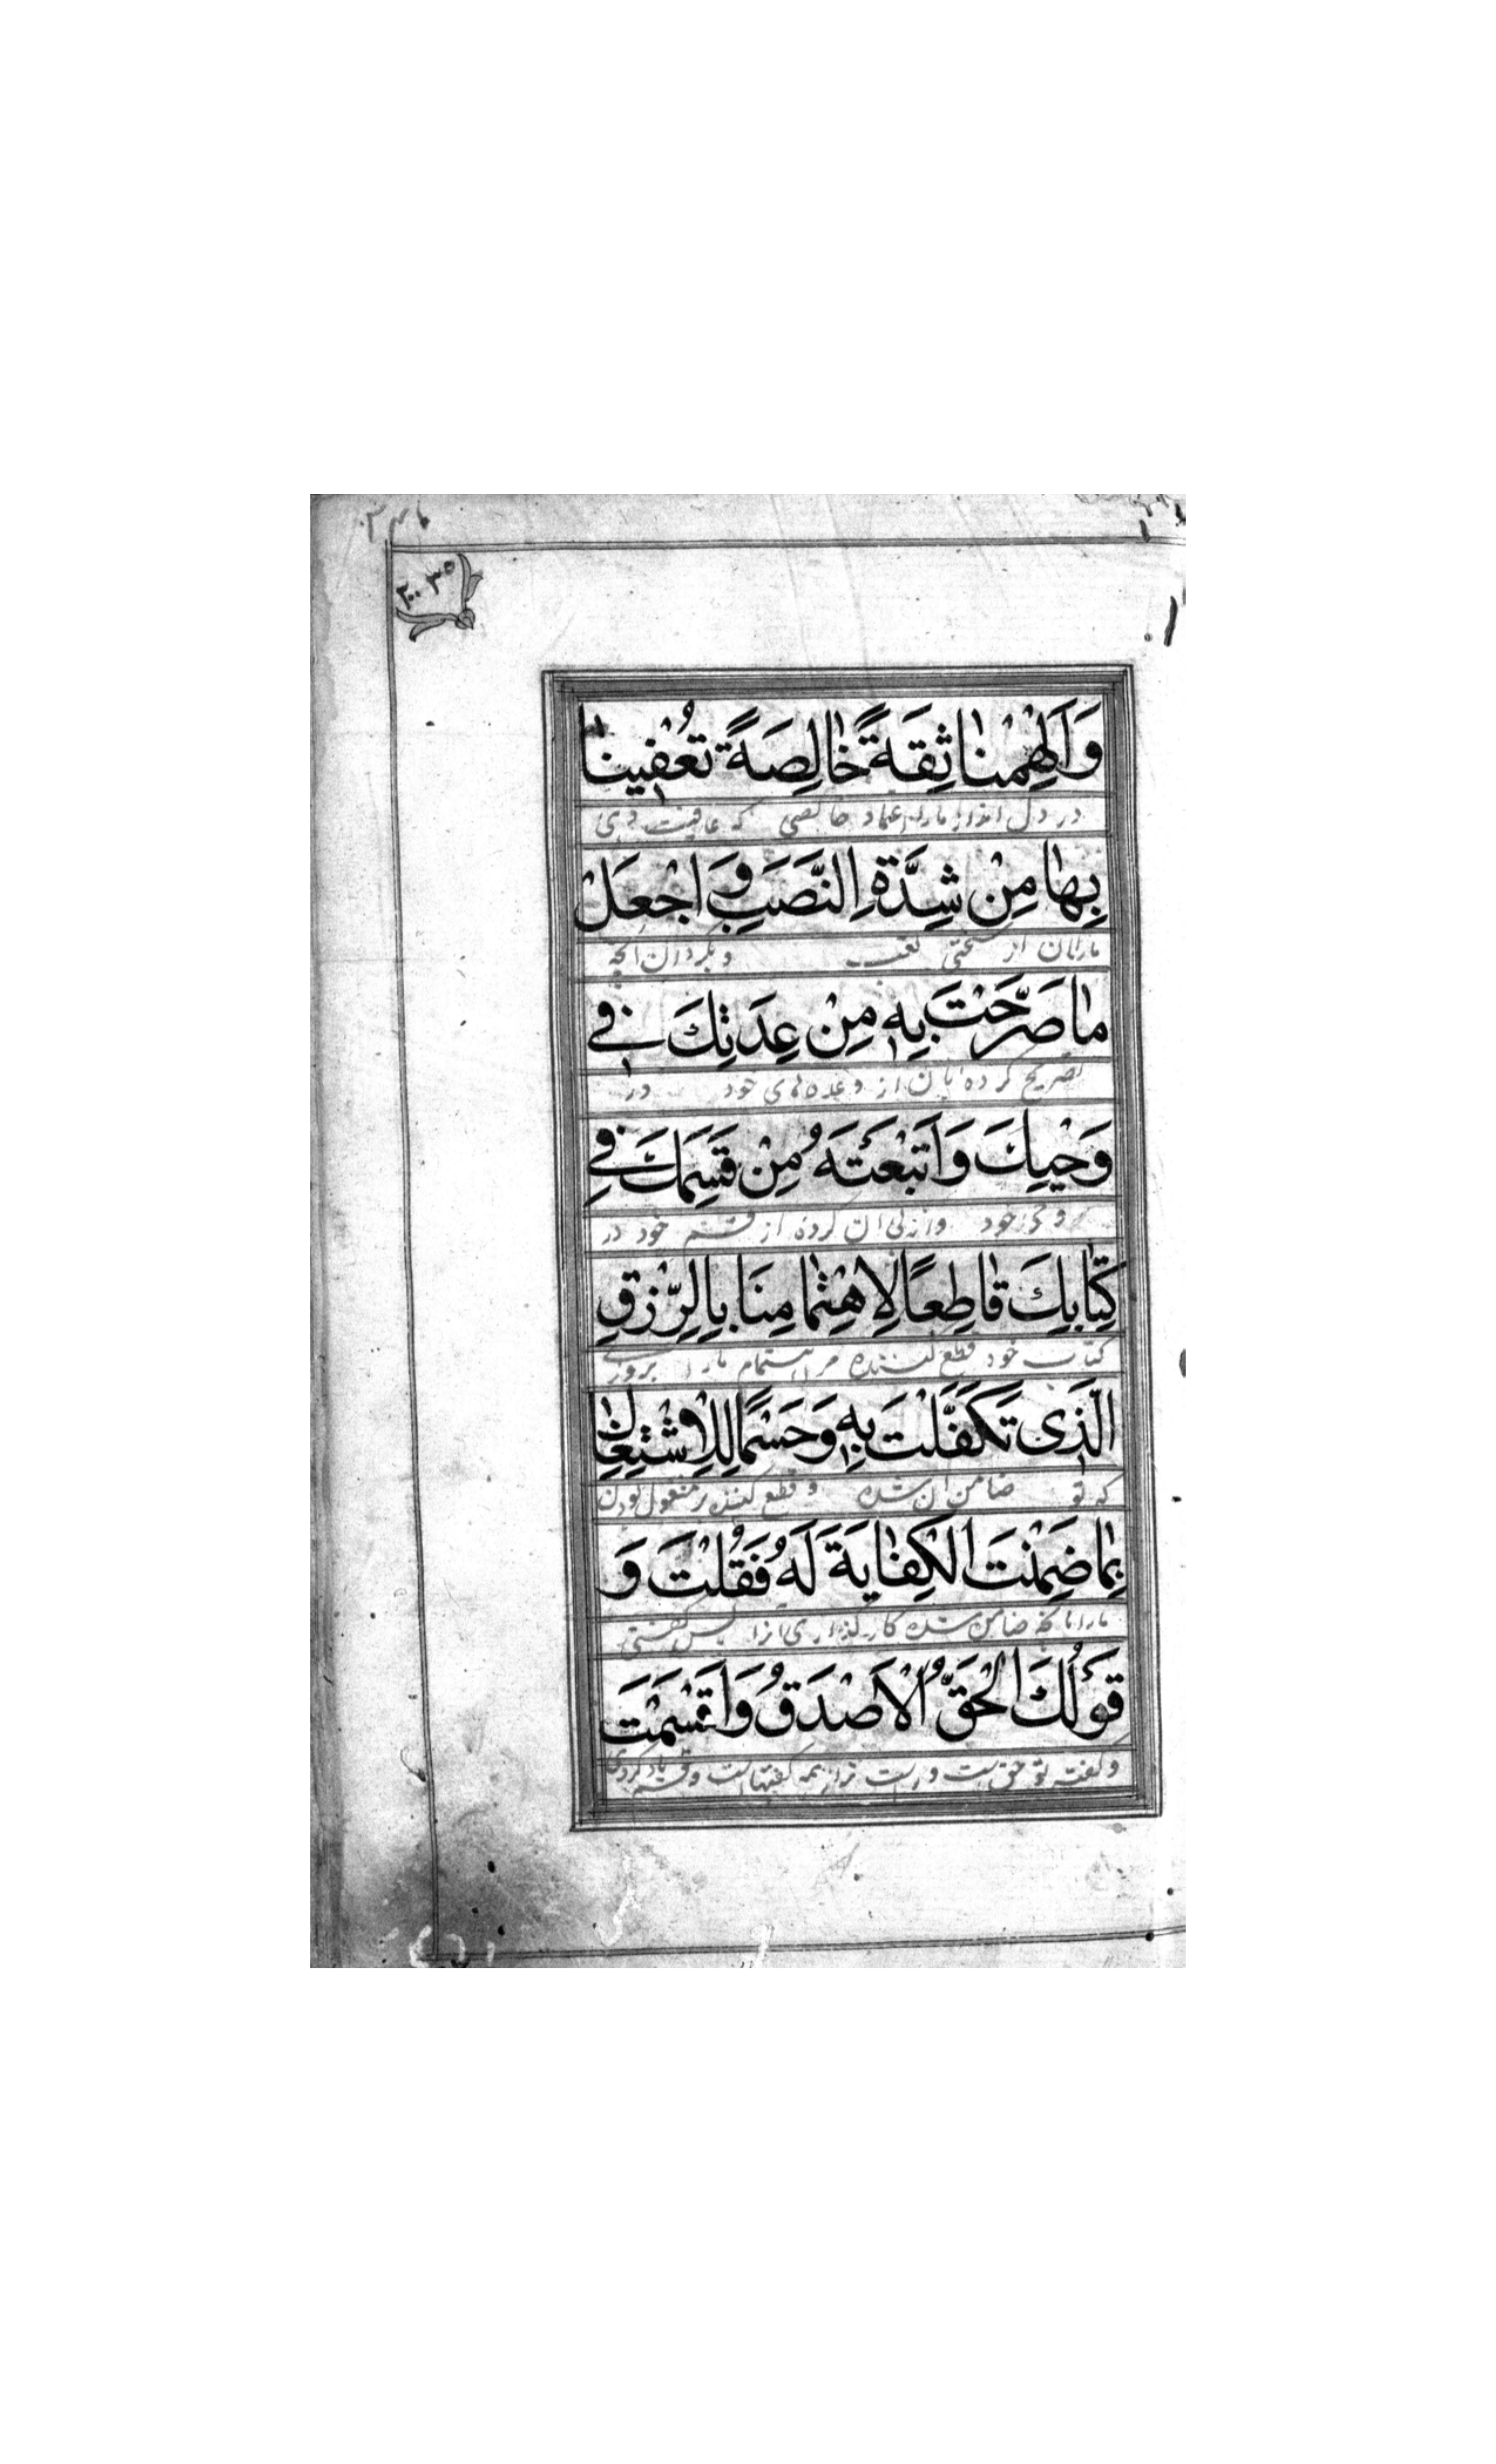 وَاَلْهِمْنا ثِقَةً خالِصَةً تُعْفينا
در دل انداز ما را اعتماد خالصی که عافیت دهی
بِها مِنْ شِدَّةِ النَّصَبِ وَاجْعَلْ
ما را بان از سختی تعب و بگردان آنچه
ما صَرَّحْتَ بِهِ مِنْ عِدَتِكَ في
تصریح کرده بان از وعده های خود در
وَحْيِكَ وَاَتْبَعْتَهُ مِنْ قَسَمِكَ في
وحی خود و از پی ان کرده از قسم خود در
كِتابِكَ قاطِعًا لِاهْتِمامِنَا بِالرِّزْقِ
کتاب خود قطع کننده مر اهتمام ما را بروزی
الَّذى تَكَفَّلْتَ بِهِ وَحَسْمًا لِلْاِشْتِغالِ
که تو ضامن ان شده و قطع کننده مر مشغول بودن
بِما ضَمِنْتَ الْكِفايَةَ لَهُ فَقُلْتَ وَ
ما را بانچه ضامن شده کار گذاری آنرا پس گفتی
قَوْلُكَ الْحَقُّ الْاَصْدَقُ وَاَقْسَمْتَ
و گفته تو حق است و راست تر از همه گفتهاست و قسم یاد کردی